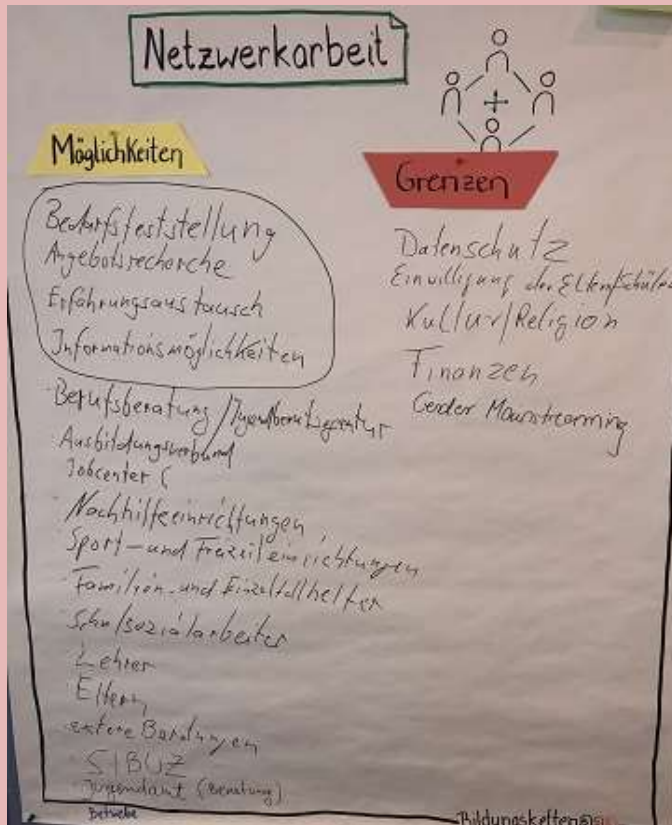 Netzwerkarbeit
Möglichkeiten
Bedarfsfeststellung
Angebotsrecherche
Erfahrungsaustausch
Informationsmöglichkeiten
Berufsberatung / Jugendberufsagentur
Ausbildungsverbund
Jobcenter (
Nachhilfeeinrichtungen
Sport- und Freizeiteinrichtungen
Familien- und Einzelfallhelfer
Schulsozialarbeiter
Lehrer
Eltern
externe Beratungen
SIBUZ
Jugendamt (Beratung)
Betriebe
Grenzen
Datenschutz
Einwilligung der Eltern/Schüler
Kultur/Religion
Finanzen
Gender Mainstreaming
Bildungsketten@